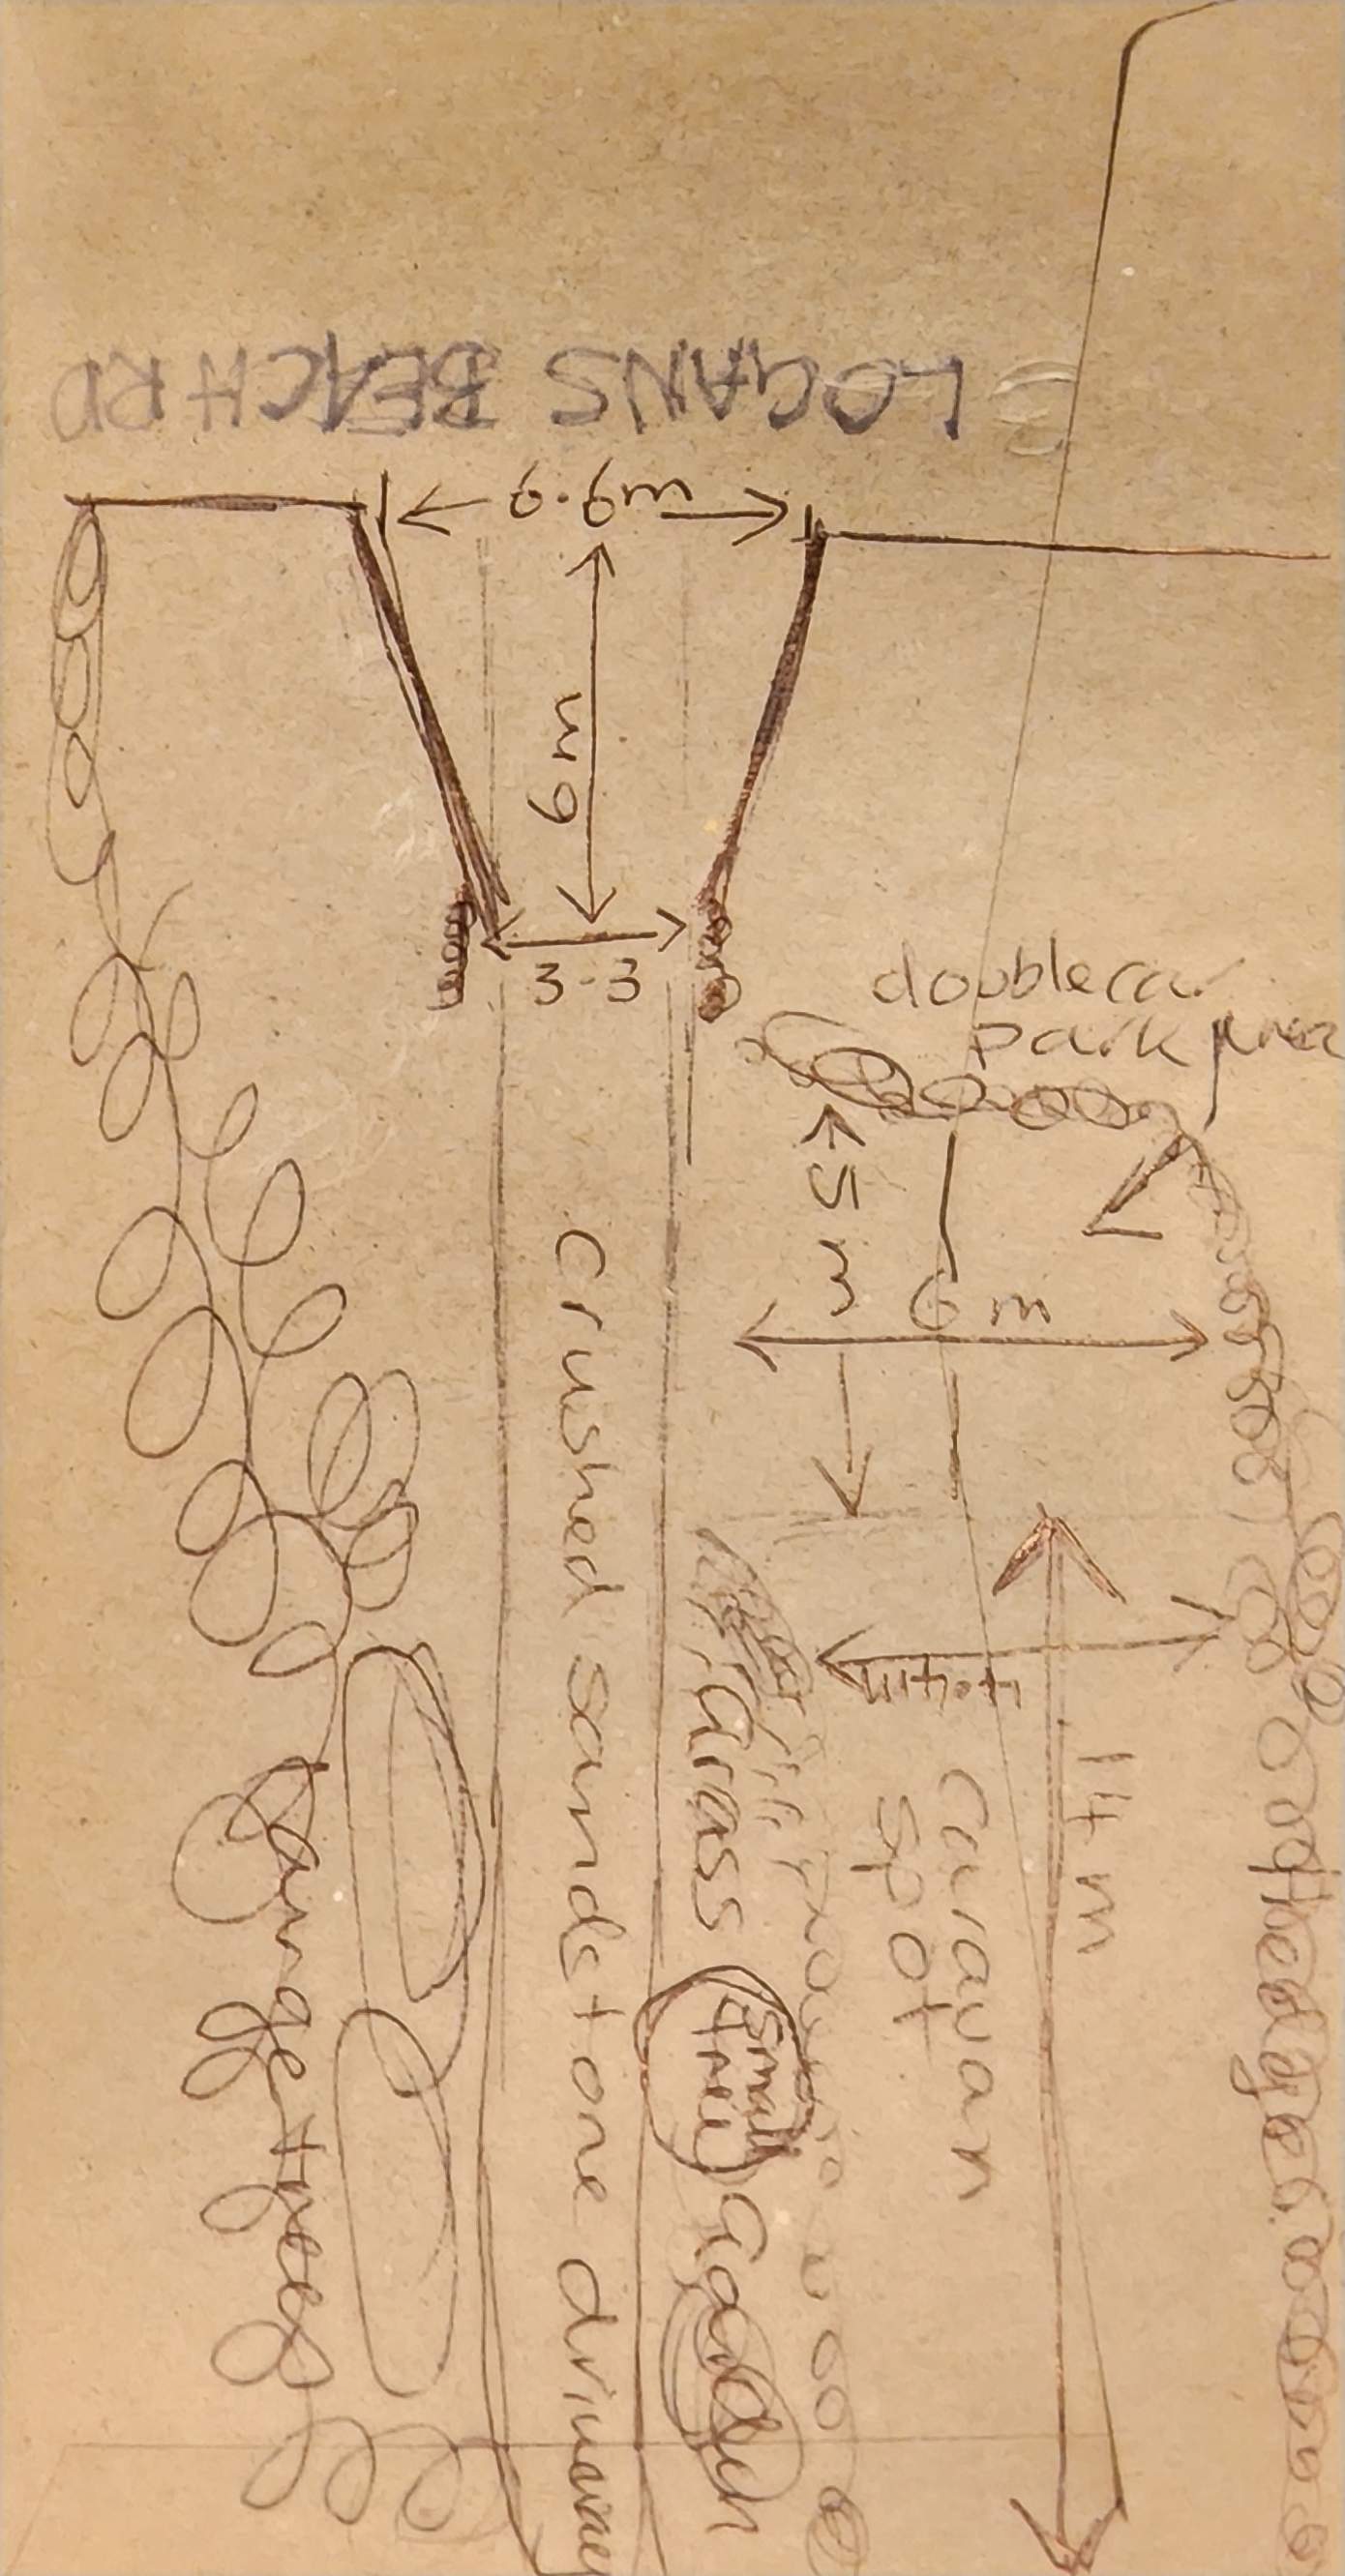 LOGANS BEACH RD
6.6m
6m
3.3
double car
park area
5m
6m
4.4m
14m
Caravan
spot
Crushed sandstone driveway
Grass
small
tree
Garden
Hedge